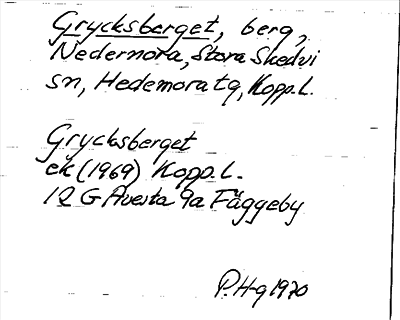 Grycksberget, berg,
Nedernora, Stora Skedvi
sn, Hedemora tg, Kopp.l.
Grycksberget
ek (1969) Kopp.l.
12 G Avesta 9a Fäggeby
P.H-g 1970